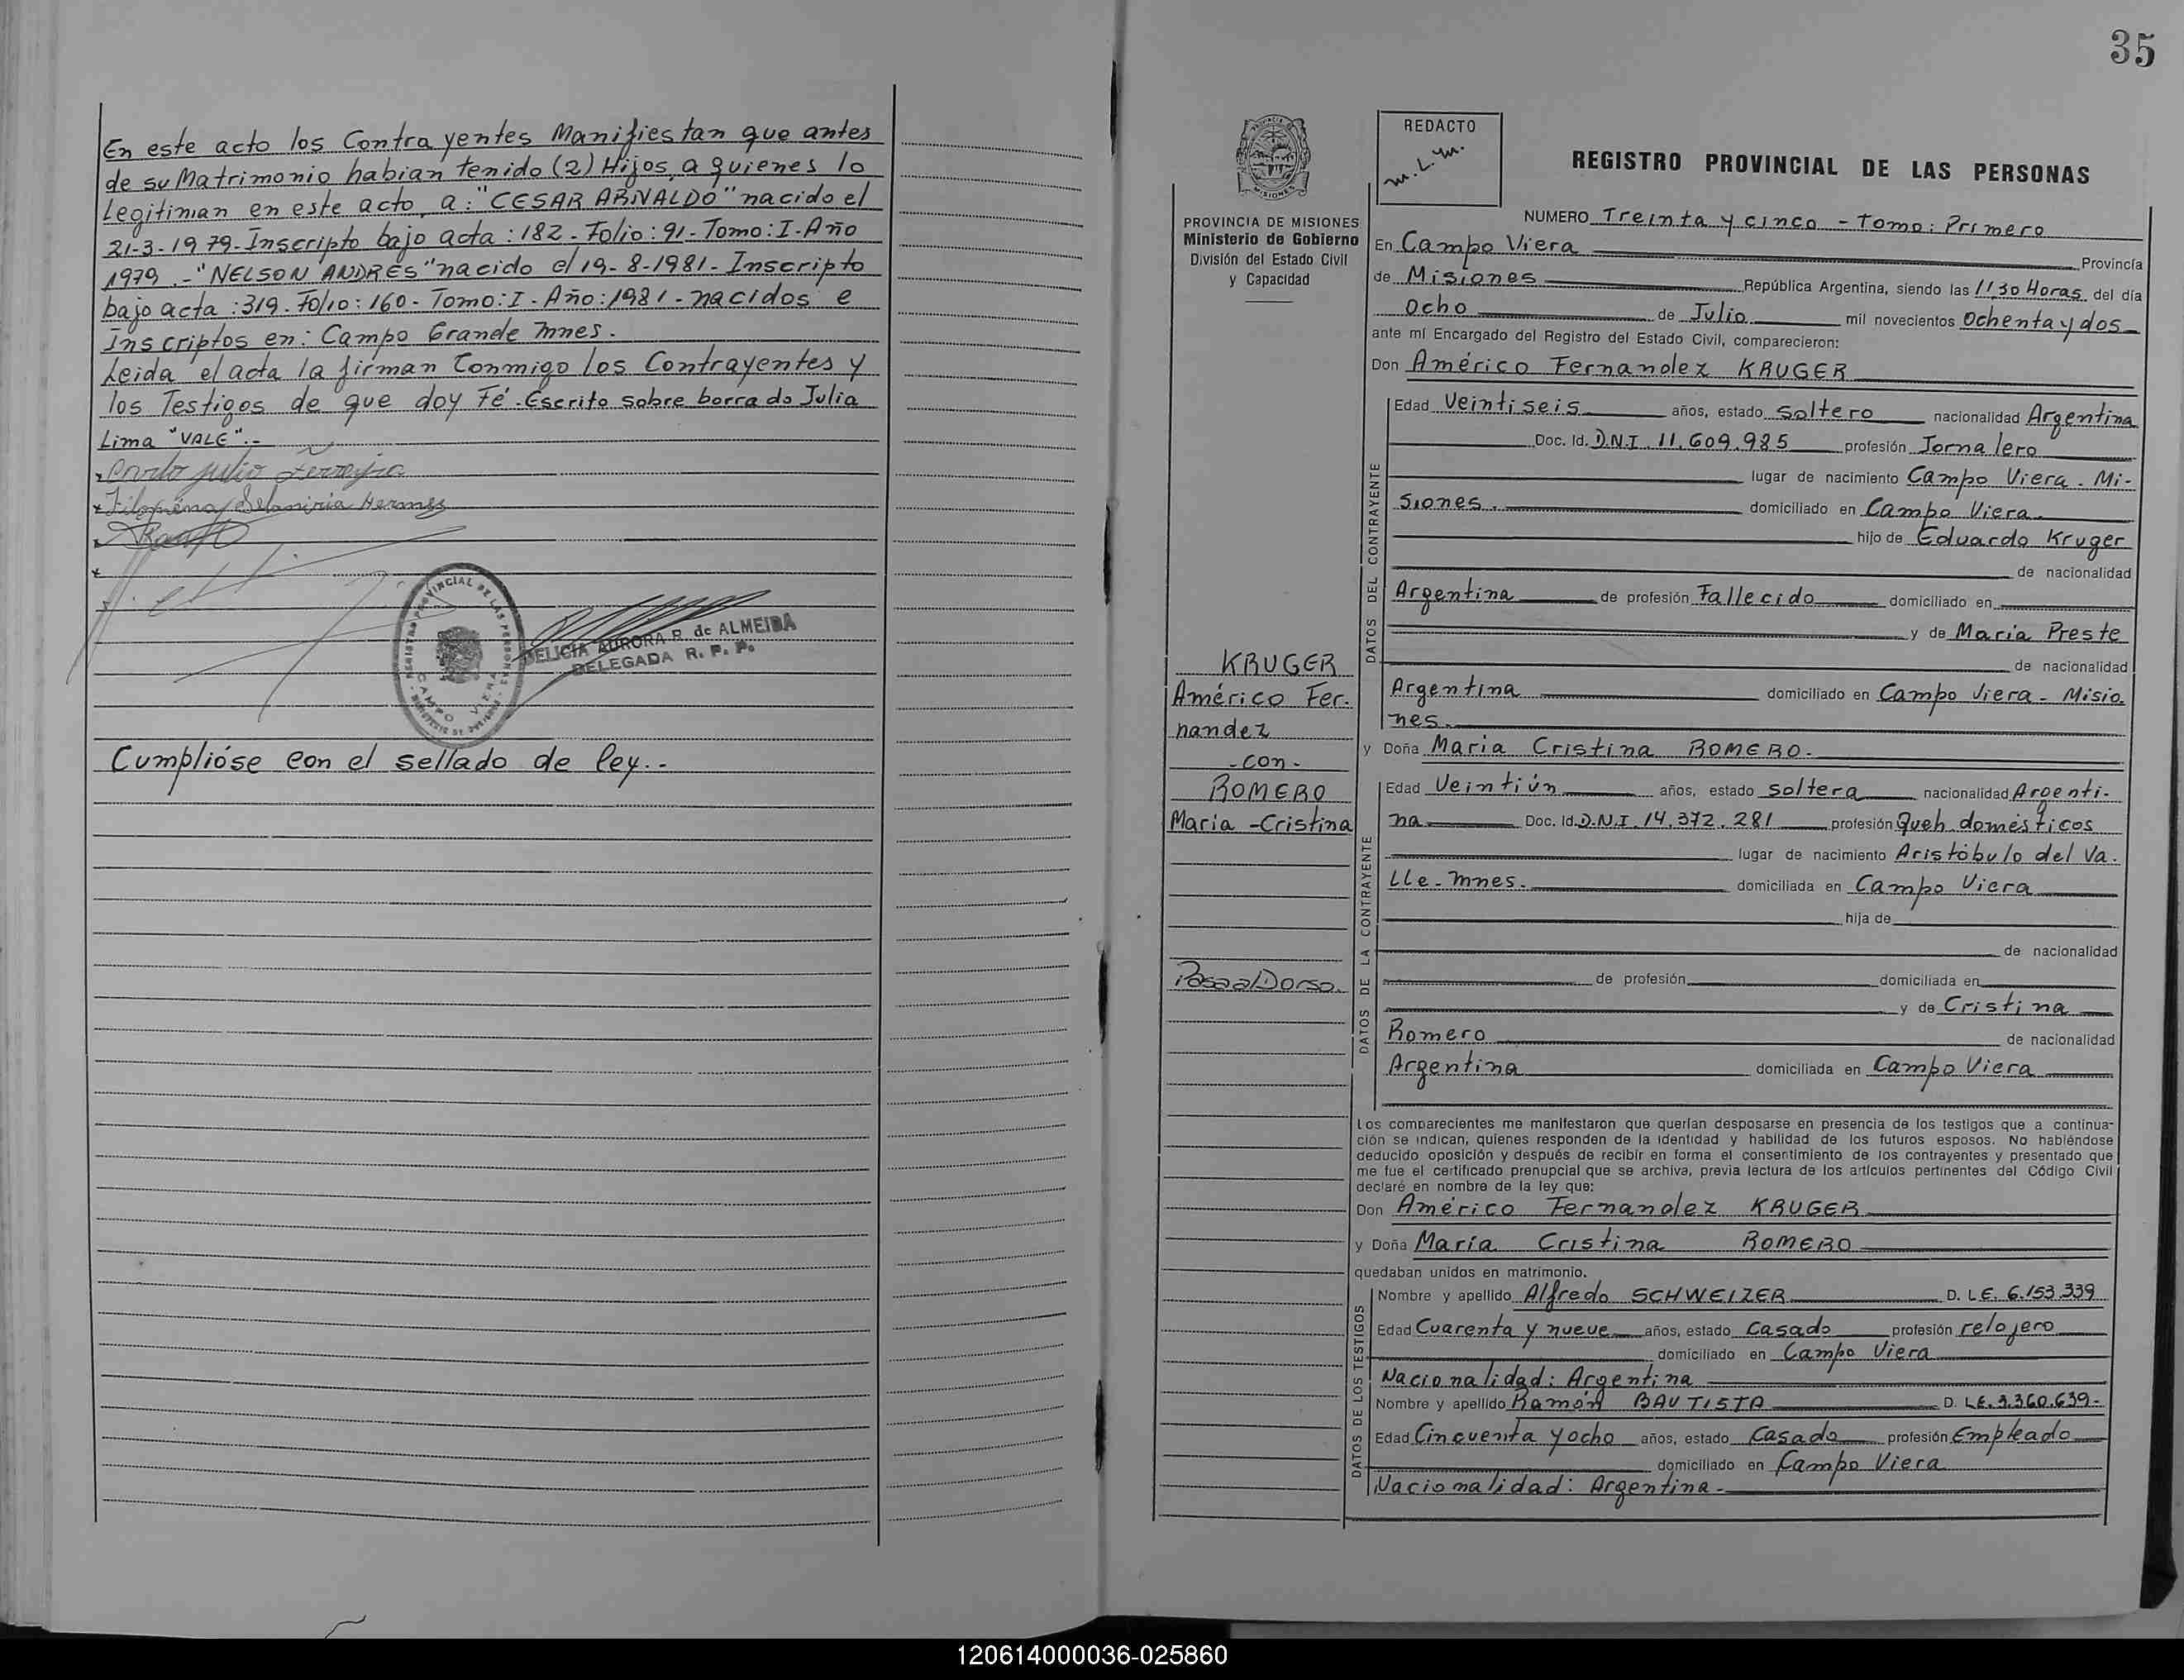 En este acto los Contrayentes Manifiestan que antes
de su Matrimonio habian tenido (2) Hijos, a quienes lo
Legitiman en este acto, a: "CESAR ARNALDO" nacido el
21-3-1979-Inscripto bajo acta: 182-Folio: 91-Tomo: I-Año
1979.-"NELSON ANDRES" nacido el 19-8-1981-Inscripto
bajo acta: 319-Folio: 160-Tomo: I-Año: 1981-nacidos e
Inscriptos en: Campo Grande Mnes.
Leida el acta la firman Conmigo los Contrayentes y
los Testigos de que doy Fé.-Escrito sobre borrado Julia
Lima "VALE".-
Julio Ferreyra
Filomena Hermes
REGISTRO PROVINCIAL DE LAS PERSONAS
CAMPO VIERA
DELICIA AURORA R. de ALMEIDA
DELEGADA R. P. P.
Cumplióse con el sellado de ley.-
35
PROVINCIA DE MISIONES
Ministerio de Gobierno
División del Estado Civil
y Capacidad
KRUGER
Américo Fer-
nandez
-con-
ROMERO
María-Cristina
Pasa al Dorso.
REDACTO
M.L.M.
REGISTRO PROVINCIAL DE LAS PERSONAS
NUMERO Treinta y cinco - Tomo: Primero
En Campo Viera Provincia
de Misiones República Argentina, siendo las 11,30 Horas del día
Ocho de Julio mil novecientos Ochenta y dos
ante mí Encargado del Registro del Estado Civil, comparecieron:
Don Américo Fernandez KRUGER
DATOS DEL CONTRAYENTE
Edad Veintiseis años, estado soltero nacionalidad Argentina
Doc. Id. D.N.I. 11.609.985 profesión Jornalero
lugar de nacimiento Campo Viera - Mi-
siones. domiciliado en Campo Viera
hijo de Eduardo Kruger
de nacionalidad
Argentina de profesión Fallecido domiciliado en
y de María Preste
de nacionalidad
Argentina domiciliado en Campo Viera - Misio-
nes.
y Doña María Cristina ROMERO.
DATOS DE LA CONTRAYENTE
Edad Veintiún años, estado soltera nacionalidad Argenti-
na Doc. Id. D.N.I. 14.372.281 profesión Queh. domésticos
lugar de nacimiento Aristóbulo del Va-
lle-Mnes. domiciliada en Campo Viera
hija de
de nacionalidad
de profesión domiciliada en
y de Cristina
Romero de nacionalidad
Argentina domiciliada en Campo Viera
Los comparecientes me manifestaron que querían desposarse en presencia de los testigos que a continua-
ción se indican, quienes responden de la identidad y habilidad de los futuros esposos. No habiéndose
deducido oposición y después de recibir en forma el consentimiento de los contrayentes y presentado que
me fue el certificado prenupcial que se archiva, previa lectura de los artículos pertinentes del Código Civil
declaré en nombre de la ley que:
Don Américo Fernandez KRUGER
y Doña María Cristina ROMERO
quedaban unidos en matrimonio.
DATOS DE LOS TESTIGOS
Nombre y apellido Alfredo SCHWEIZER D. L.E. 6.153.339
Edad Cuarenta y nueve años, estado Casado profesión relojero
domiciliado en Campo Viera
Nacionalidad: Argentina
Nombre y apellido Ramón BAUTISTA D. L.E. 3.360.639-
Edad Cincuenta y ocho años, estado Casado profesión Empleado
domiciliado en Campo Viera
Nacionalidad: Argentina-
120614000036-025860